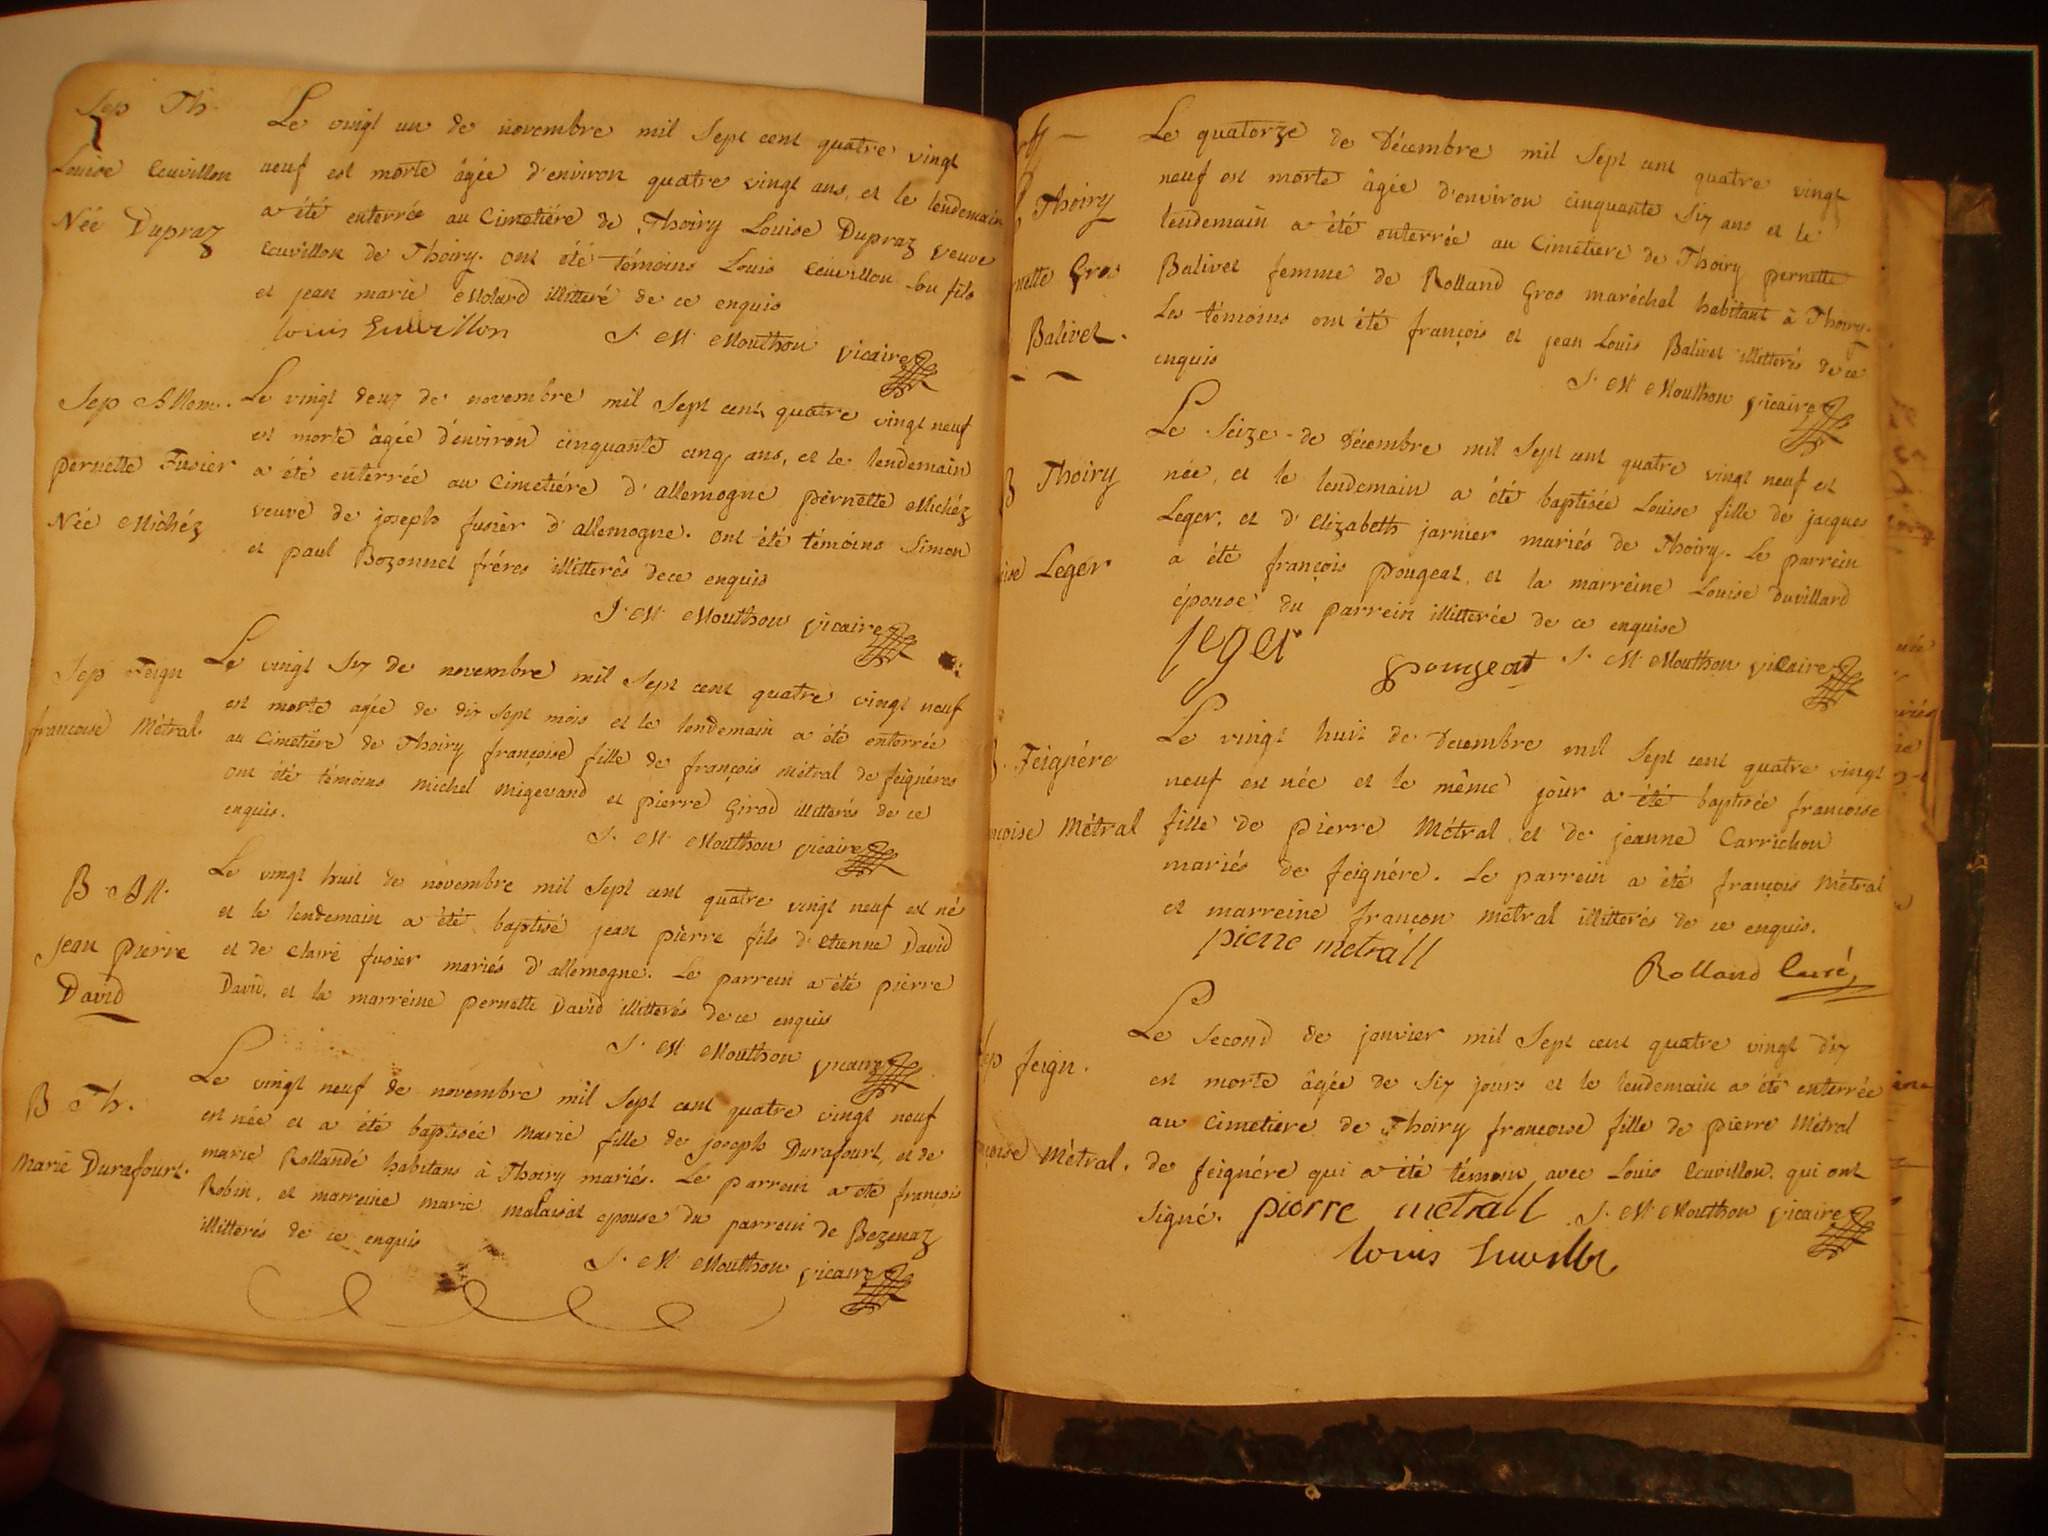 Sep Th.
Louise Ecuvillon
Née Dupraz
Le vingt un de novembre mil Sept cent quatre vingt
neuf est morte âgée d'environ quatre vingt ans, et le lendemain
a été enterrée au Cimetiére de Thoiry Louise Dupraz veuve
Ecuvillon de Thoiry. ont été témoins Louis Ecuvillon son fils
et jean marie Molard illitteré de ce enquis
louis Euvillon J. M. Mouthon vicaire
Sep Allem.
pernette Fusier
Née Michéz
Le vingt deux de novembre mil Sept cent quatre vingt neuf
est morte âgée d'environ cinquante cinq ans, et le lendemain
a été enterrée au Cimetiére d'allemogne pernette Michéz
veuve de joseph fusier d'allemogne. ont été témoins Simon
et paul Bozonnet fréres illitterés de ce enquis
J. M. Mouthon vicaire
Sep Feign
françoise Métral.
Le vingt Six de novembre mil Sept cent quatre vingt neuf
est morte agée de dix sept mois et le lendemain a été enterrée
au Cimetiére de Thoiry françoise fille de françois Métral de feignéres
ont été témoins Michel Migevand et pierre Girod illitterés de ce
enquis.
J. M. Mouthon vicaire
B All.
jean pierre
David
Le vingt huit de novembre mil Sept cent quatre vingt neuf est né
et le lendemain a été baptisé jean pierre fils d'Etienne David
et de Claire fusier mariés d'allemogne. Le parrein a été pierre
David, et la marreine pernette David illitterés de ce enquis
J. M. Mouthon vicaire
B Th.
Marie Durafourt.
Le vingt neuf de novembre mil Sept cent quatre vingt neuf
est née et a été baptisée Marie fille de joseph Durafourt, et de
marie Rollandé habitans à Thoiry mariés. Le parrein a été françois
Robin, et marreine marie malaisat epouse du parrein de Bezenaz
illitterés de ce enquis
J. M. Mouthon vicaire
Thoiry
Gros
Balivet.
Le quatorze de Décembre mil Sept cent quatre vingt
neuf est morte âgée d'environ cinquante Six ans et le
lendemain a été enterrée au Cimetiere de Thoiry pernette
Balivet femme de Rolland Gros maréchal habitant à Thoiry.
Les témoins ont été françois et jean Louis Balivet illitterés de ce
enquis
J. M. Mouthon vicaire
B Thoiry
Leger
Le Seize de Décembre mil Sept cent quatre vingt neuf est
née, et le lendemain a été baptisée Louise fille de jacques
Leger, et d'Elizabeth jarnier mariés de Thoiry. Le parrein
a été françois pougeat, et la marreine Louise duvillard
épouse du parrein illitterée de ce enquise
leger
pougeat J. M. Mouthon vicaire
B. Feignére
Métral
Le vingt huit de Decembre mil Sept cent quatre vingt
neuf est née et le même jour a été baptisée francoise
fille de pierre Métral et de jeanne Carrichon
mariés de feignére. Le parrein a été françois Métral
et marreine françon métral illitterés de ce enquis.
pierre metrall
Rolland Curé
Sep feign.
Métral.
Le Second de janvier mil Sept cent quatre vingt dix
est morte âgée de Six jours et le lendemain a été enterrée
au Cimetiere de Thoiry francoise fille de pierre Métral
de feignére qui a été témoin avec Louis Ecuvillon. qui ont
signé. pierre metrall J. M. Mouthon vicaire
louis Euvillon